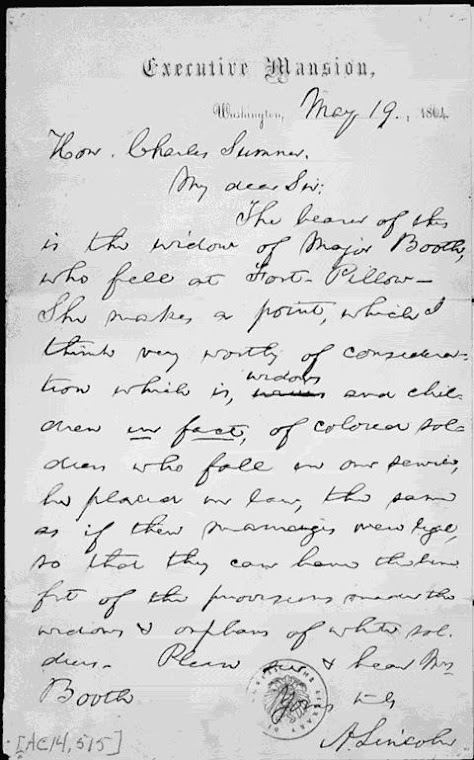 Executive Mansion,
Washington, May 19., 1864.
Hon. Charles Sumner.
My dear Sir:
The bearer of this
is the widow of Major Booth,
who fell at Fort-Pillow—
She makes a point, which I
think very worthy of considera-
tion which is, widows and chil-
dren in fact, of colored sol-
diers who fall in our service,
be placed in law, the same
as if their marriages were legal,
so that they can have the bene
fit of the provisions made the
widows & orphans of white sol-
diers. Please see & hear Mrs
Booth
Yours truly
A. Lincoln.
[AC14, 515]